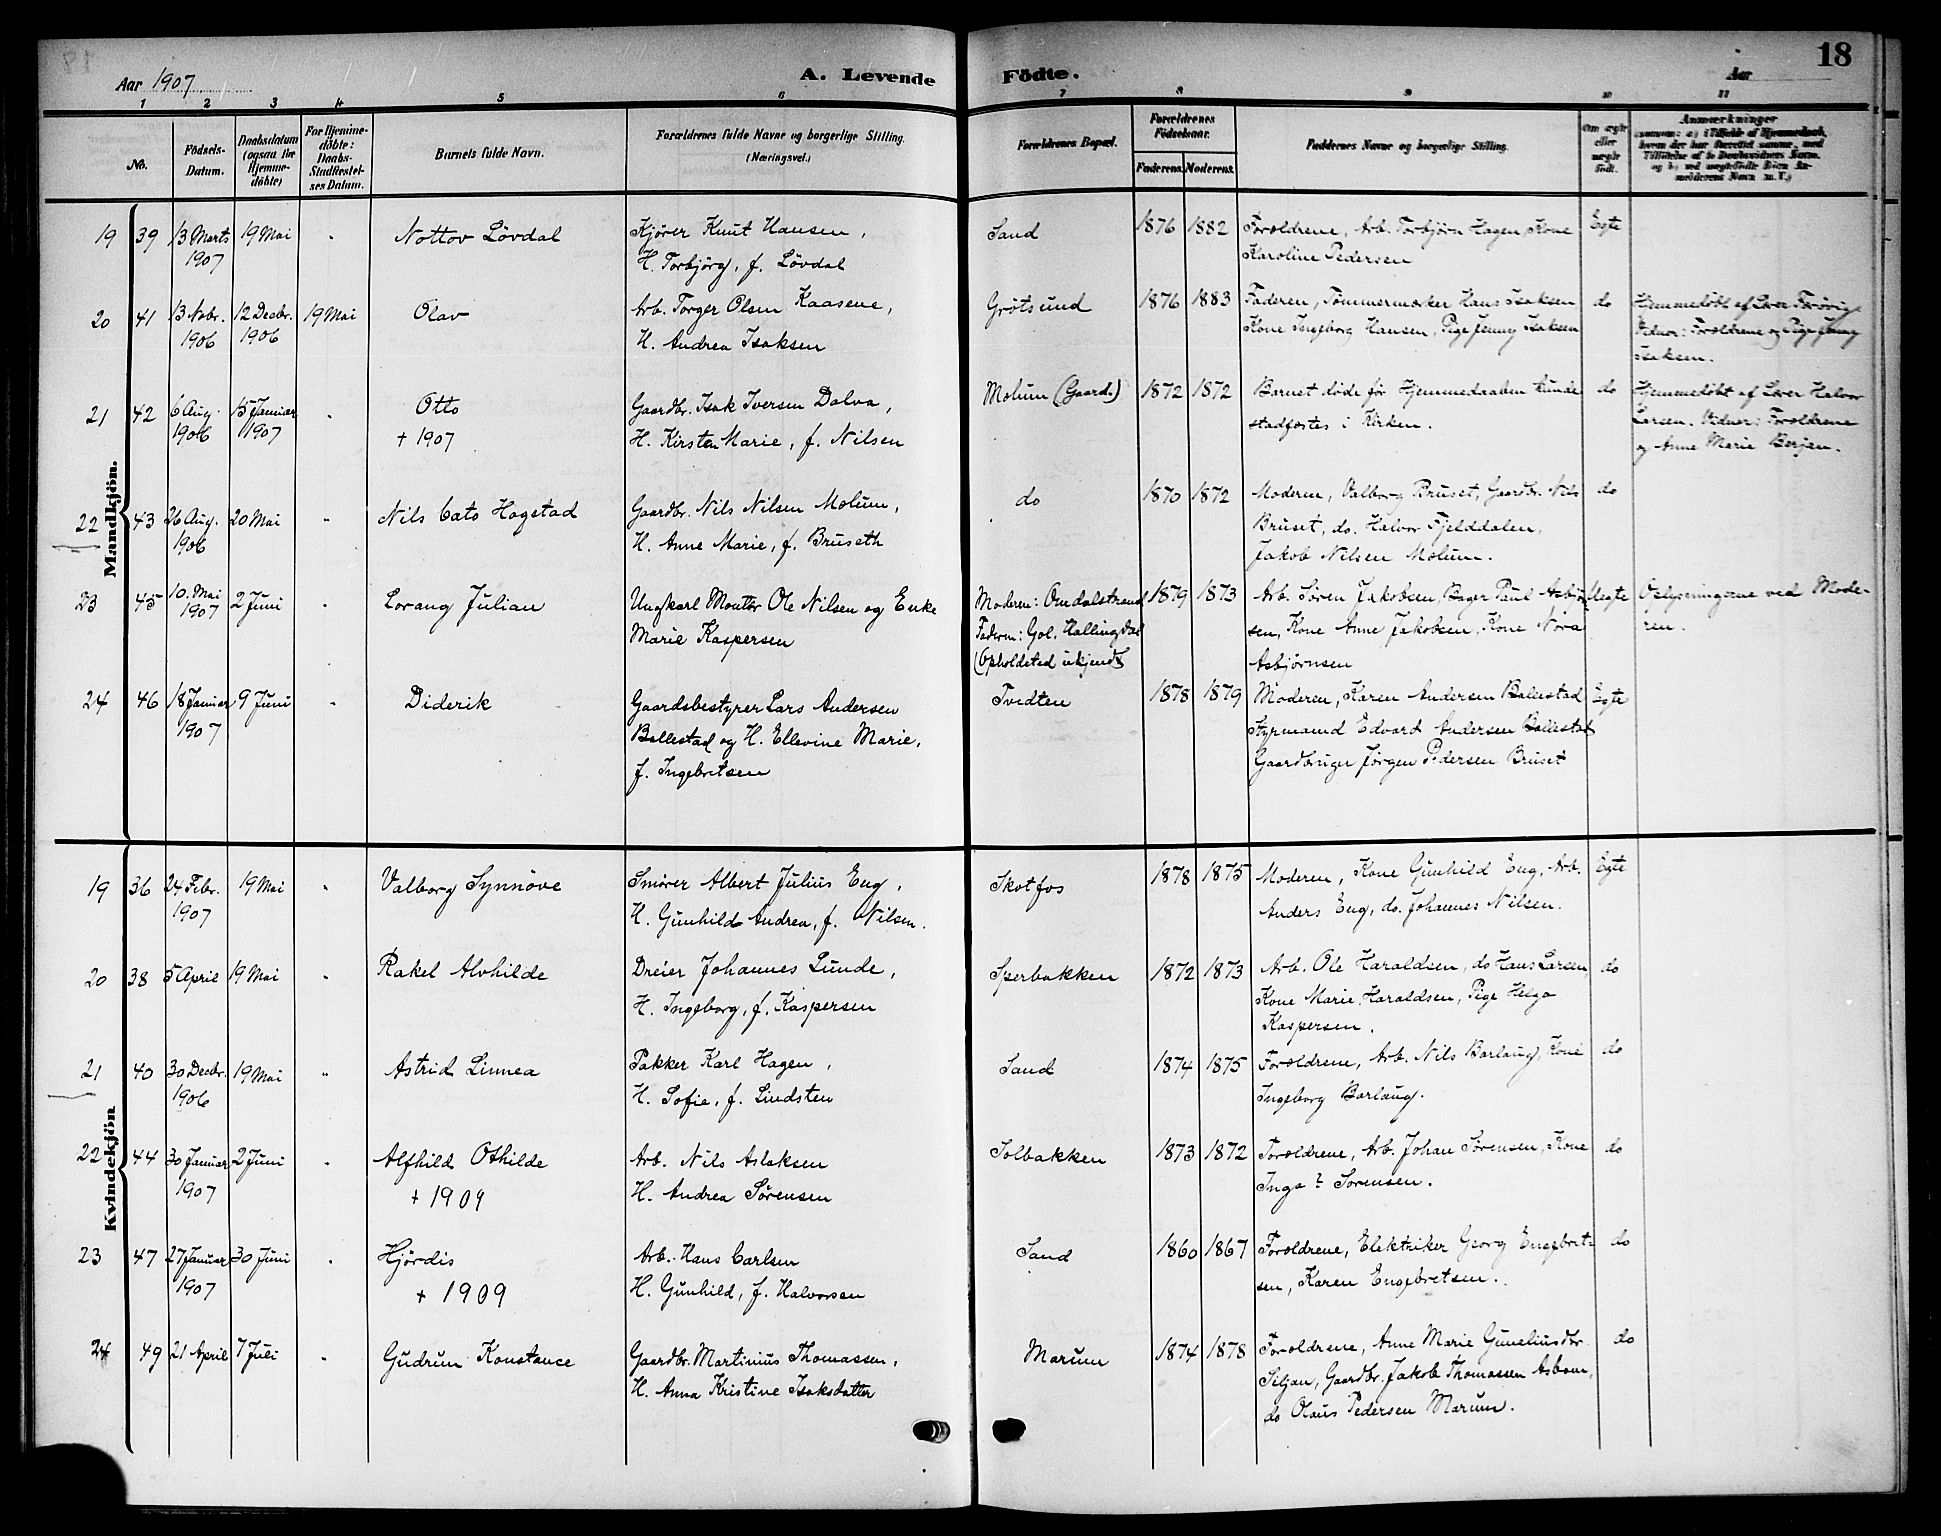 18
Aar 1907
A. Levende Födte.
Aar
1 2 3 4 5 6 7 8 9 10 11
No.
Födsels-
Datum.
Daabsdatum
(ogsaa for
Hjemme-
döbte)
For Hjemme-
döbte:
Daabs-
Stadfæstel-
ses Datum.
Barnets fulde Navn.
Forældrenes fulde Navne og borgerlige Stilling.
(Næringsvei.)
Forældrenes Bopæl.
Forældrenes
Födselsaar.
Faderens. Moderens.
Faddernes Navne og borgerlige Stilling.
Om ægte
eller
uægte
født.
Anmærkninger
Mandkjön.
19 39 13 Marts 19 Mai " Nottov Lövdal Kjører Knut Hansen, Sand 1876 1882 Forældrene, Arb. Torbjörn Hagen, Kone Egte
1907 H. Torbjörg, f. Lövdal Karoline Pedersen
20 41 13 Novbr. 12 Decbr. 19 Mai Olav Arb. Torger Olsen Kaasene, Grötsund 1876 1883 Faderen, Tømmermærker Hans Isaksen do Hjemmedöbt af Lærer
1906 1906 H. Andrea Isaksen Kone Ingeborg Hansen, Pige Jenny Isaksen Vidner: Forældrene og Pige Jenny
Isaksen.
21 42 6 Aug. 15 Januar " Otto Gaardbr. Isak Iversen Dalva, Molum (Gaard) 1872 1872 Barnet døde før Hjemmedaaben kunde do Hjemmedøbt af Lærer Halvor
1906 1907 + 1907 H. Kirsten Marie, f. Nilsen stadfæstes i Kirken. Larsen. Vidner: Forældrene
og Anne Marie Berjan.
22 43 26 Aug. 20 Mai " Nils Cato Hogstad Gaardbr. Nils Nilsen Molum, do 1870 1872 Moderen, Valborg Bruset, Gaardbr. Nils do
1906 H. Anne Marie, f. Bruseth Bruset, do. Halvor Fjelddalen.
Jakob Nilsen Molum.
23 45 10. Mai 2 Juni " Lorang Julian Ungkarl Montør Ole Nilsen og Enke Moderen: Omdalstrand 1879 1873 Arb. Søren Jakobsen, Bager Paul Asbjørn- Uegte Oplysningerne ved Mode-
1907 Marie Kaspersen Faderen: Gol. Hallingdal sen, Kone Anne Jakobsen, Kone Nora ren.
(Opholdsted ukjendt) Asbjørnsen
24 46 18 Januar 9 Juni " Diderik Gaardsbestyrer Lars Andersen Tvedten 1878 1879 Moderen, Karen Andersen Ballestad Egte
1907 Ballestad og H. Ellevine Marie, Styrmand Edvard Andersen Ballestad
f. Ingebretsen Gaardbruger Jørgen Pedersen Bruset
Kvindekjön
19 36 24 Febr. 19 Mai " Valborg Synnöve Smører Albert Julius Eng, Skotfos 1878 1875 Moderen, Kone Gunhild Eng, Arb. Egte
1907 H. Gunhild Andrea, f. Nilsen. Anders Eng, do. Johannes Nilsen.
20 38 5 April 19 Mai " Rakel Alvhilde Dreier Johannes Lunde, Sperbakken 1872 1873 Arb. Ole Haraldsen, do Hans Larsen, do
H. Ingeborg, f. Kaspersen Kone Marie Haraldsen, Pige Helga
Kaspersen.
21 40 30 Decbr. 19 Mai " Astrid Linnea Pakker Karl Hagen, Sand 1874 1875 Forældrene, Arb. Nils Barlaug, Kone do
1906 H. Sofie, f. Lindsten Ingeborg Barlaug.
22 44 30 Januar 2 Juni " Alfhild Othilde Arb. Nils Aslaksen Solbakken 1873 1872 Forældrene, Arb. Johan Sørensen, Kone do
1907 + 1909 H. Andrea Sørensen Inga ? Sørensen.
23 47 27 Januar 30 Juni " Hjördis Arb. Hans Carlsen Sand 1860 1867 Forældrene, Elektriker Georg Engebret- do
1907 + 1909 H. Gunhild, f. Halvorsen sen, Karen Engebretsen.
24 49 21 April 7 Juli " Gudrun Konstance Gaardbr. Martinius Thomassen, Marum 1874 1878 Forældrene, Anne Marie Guneliusdtr. do
H. Anna Kristine Isaksdatter Siljan, Gaardbr. Jakob Thomassen Asbom,
do Olaus Pedersen Marum.